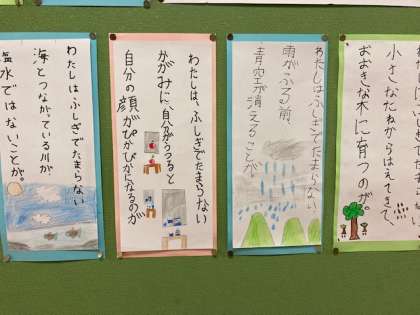 小さなたねからはえてきて、
おおきな木に育つのが。
わたしはふしぎでたまらない
雨がふる前、
青空が消えることが
わたしは、ふしぎでたまらない
かがみに、自分がうつると
自分の顔がぴかぴかになるのが
わたしはふしぎでたまらない
海とつながっている川が
塩水ではないことが。